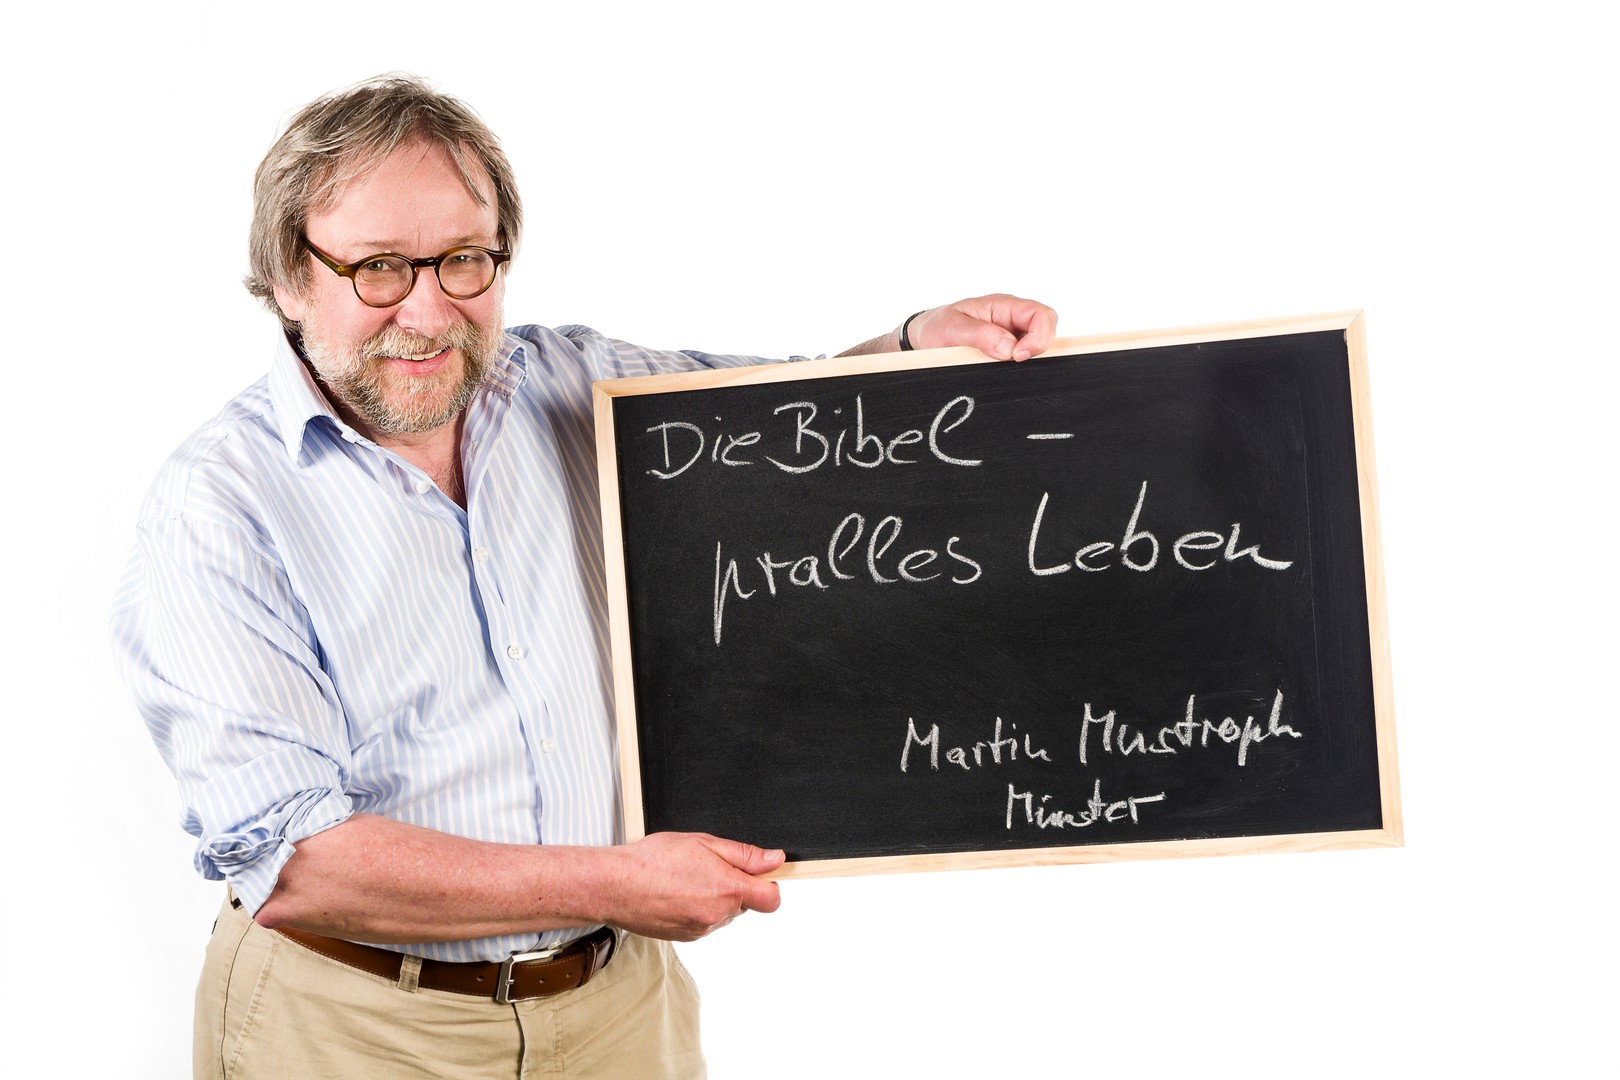 Die Bibel –
pralles Leben
Martin Mustroph
Münster